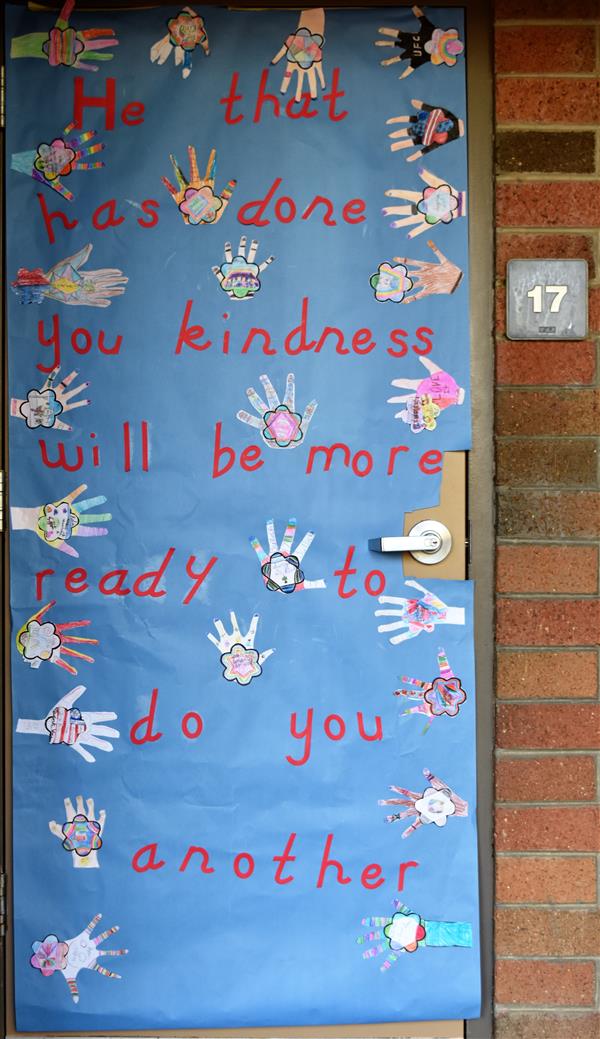 UFC
He that
has done
17
you kindness
LOVE
will be more
ready to
do you
another